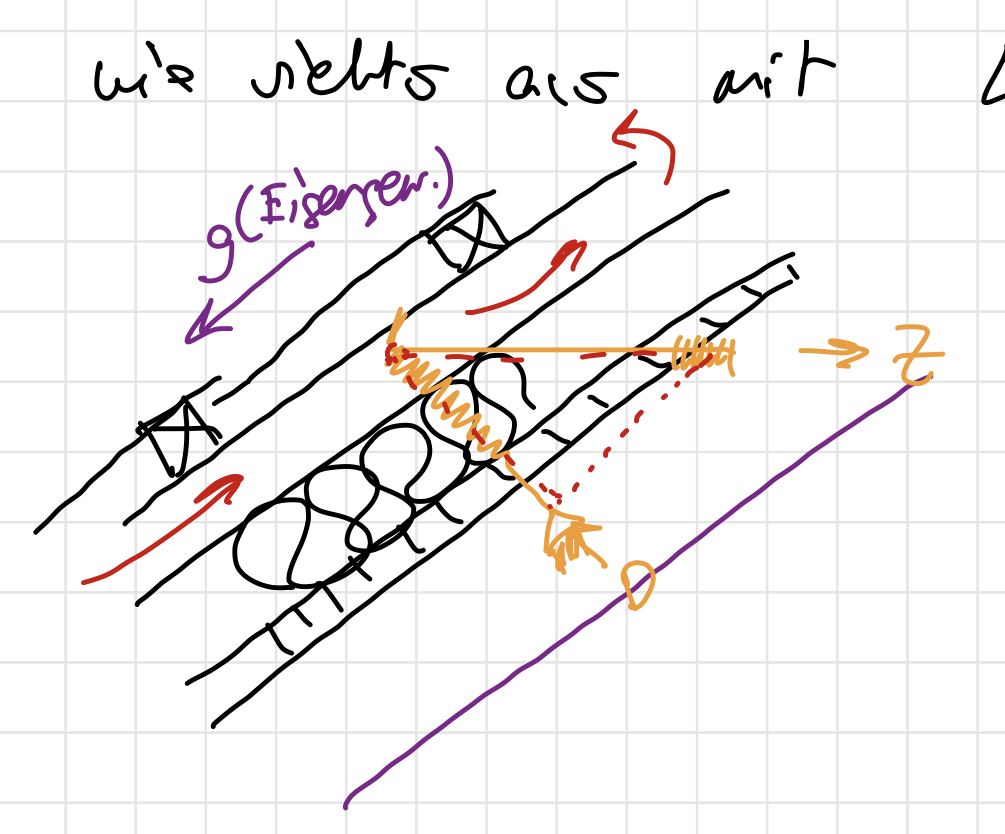 wie siehts aus mit
g (Eigengew.)
Z
D